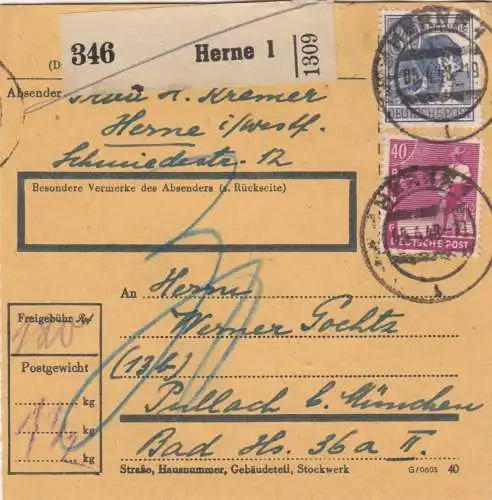 346 Herne 1 1309
(D
Absender Frau H. Kremer
Herne i/Westf.
Schmiedestr. 12
Besondere Vermerke des Absenders (s. Rückseite)
DEUTSCHE POST
40
DEUTSCHE POST
HERNE 1
An Herrn
Werner Gochtz
(13b)
Pullach b. München
Bad Hs. 36a II.
Freigebühr Rpf
120
Postgewicht
kg
kg
kg
Straße, Hausnummer, Gebäudeteil, Stockwerk G/0603 40